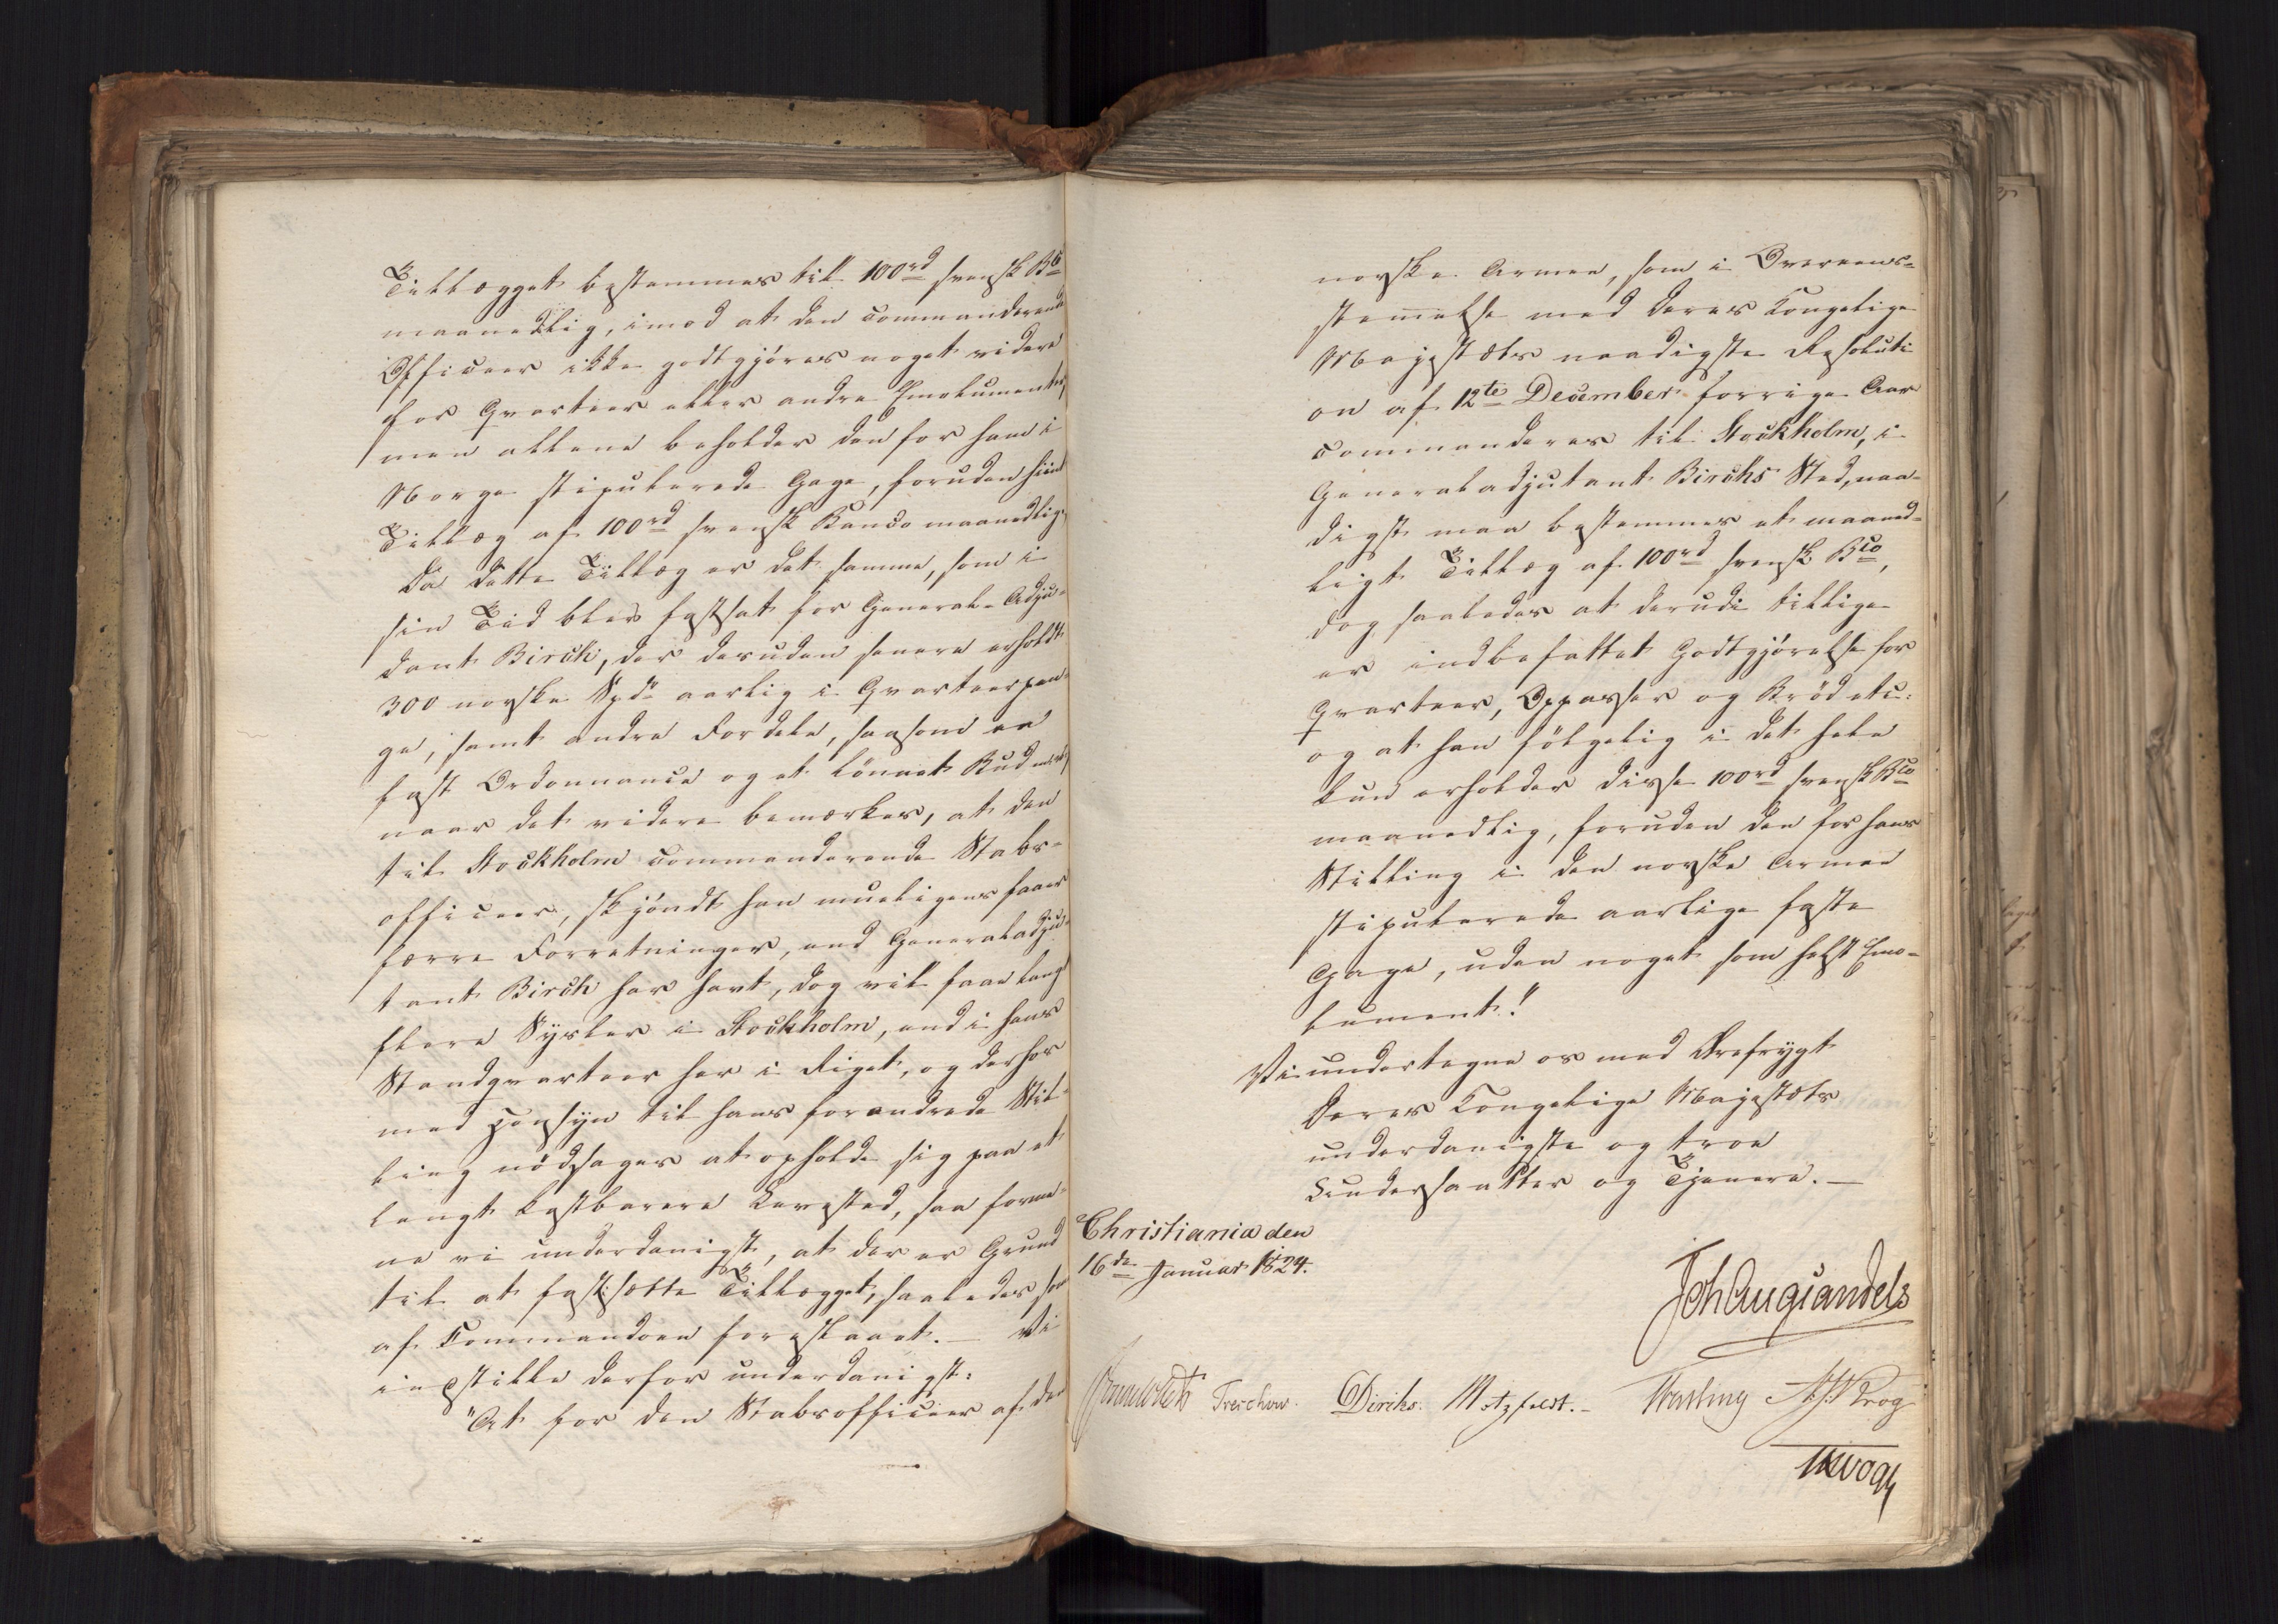 Tillægget bestemmes til 100rd svensk Bco
maanedlig, imod at den commanderende
Officeer ikke godtgjøres noget videre
for Qvarteer eller andre Emolumenter,
men allene beholder den for ham i
Norge stipulerede Gage, foruden hiint
Tillæg af 100rd svensk Banco maanedlig.
Da dette Tillæg er det samme, som i
sin Tid blev fastsat for General-Adju-
dant Birch, der desuden senere erholdt
300 norske Spd. aarlig i Qvarteerpen-
ge, samt andre Fordele, saasom en
fast Ordonnance og et lønnet Bud
naar det videre bemærkes, at den
til Stockholm commanderende Stabs-
officeer, skjøndt han mueligens faaer
færre Forretninger, end Generaladju-
tant Birch har havt, dog vil faae langt
flere Sysler i Stockholm, end i hans
Standqvarteer her i Riget, og derhos
med Hensyn til hans forandrede Stil-
ling nødsages at opholde sig paa et
langt kostbarere Levested, saa forme-
ne vi underdanigst, at der er Grund
til at fastsætte Tillægget, saaledes som
af Commandoen foreslaaet. — Vi
indstille derfor underdanigst:
"At for den Stabsofficeer af den
norske Armee, som i Overeens-
stemmelse med Deres Kongelige
Majestæts naadigste Resoluti
on af 12te December forrige Aar
commanderes til Stockholm, i
Generaladjutant Birchs Sted, naa-
digst maa bestemmes et maaned-
ligt Tillæg af 100rd svensk Bco,
dog saaledes at derudi tillige
er indbefattet Godtgjørelse for
Qvarteer, Oppasser og Brød etc:
og at han følgelig i det hele
kun erholder disse 100rd svensk Bco
maanedlig, foruden den for hans
Stilling i den norske Armee
stipulerede aarlige faste
Gage, uden noget som helst Emo-
lument."
Vi undertegne os med Ærefrygt
Deres Kongelige Majestæts
underdanigste og troe
Undersaatter og Tjenere. —
Christiania den
16de Januar 1824.
Joh Aug Sandels
Sommerfeldt Treschow. Diriks. Motzfeldt. Fasting Krog
Vogt